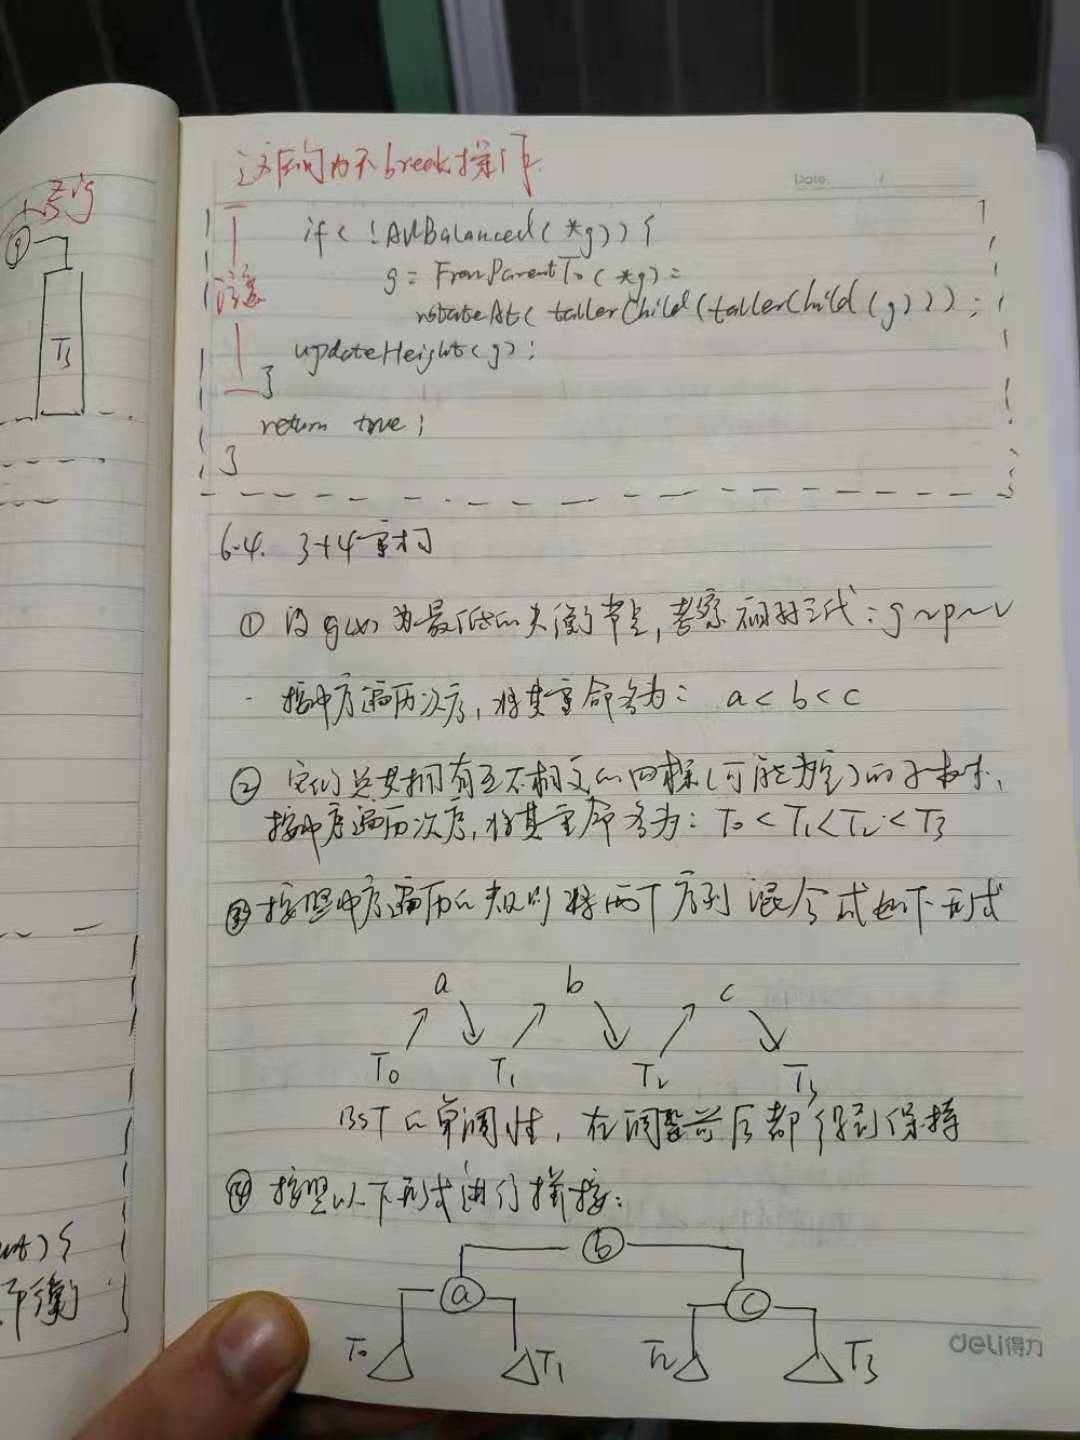 这后面为不break操作
Date. /
if( !AvlBalanced( *g)) {
g = FromParentTo( *g) =
rotateAt( tallerChild( tallerChild (g) ) ) ;
注意
updateHeight(g) ;
}
return true ;
}
6.4. 3+4重构
① 设g(x)为最低的失衡节点,考察祖孙三代: g~p~v
按中序遍历次序,将其重命名为: a < b < c
② 它们总共拥有互不相交的四棵(可能为空)的子树,
按中序遍历次序,将其重命名为: T0 < T1 < T2 < T3
③ 按照中序遍历的规则将两个序列混合成如下形式
a b c
T0 T1 T2 T3
BST的单调性, 在调整前后都得到保持
④ 按照以下形式进行拼接:
b
a c
T0 T1 T2 T3
deli得力
g
T3
) {
平衡